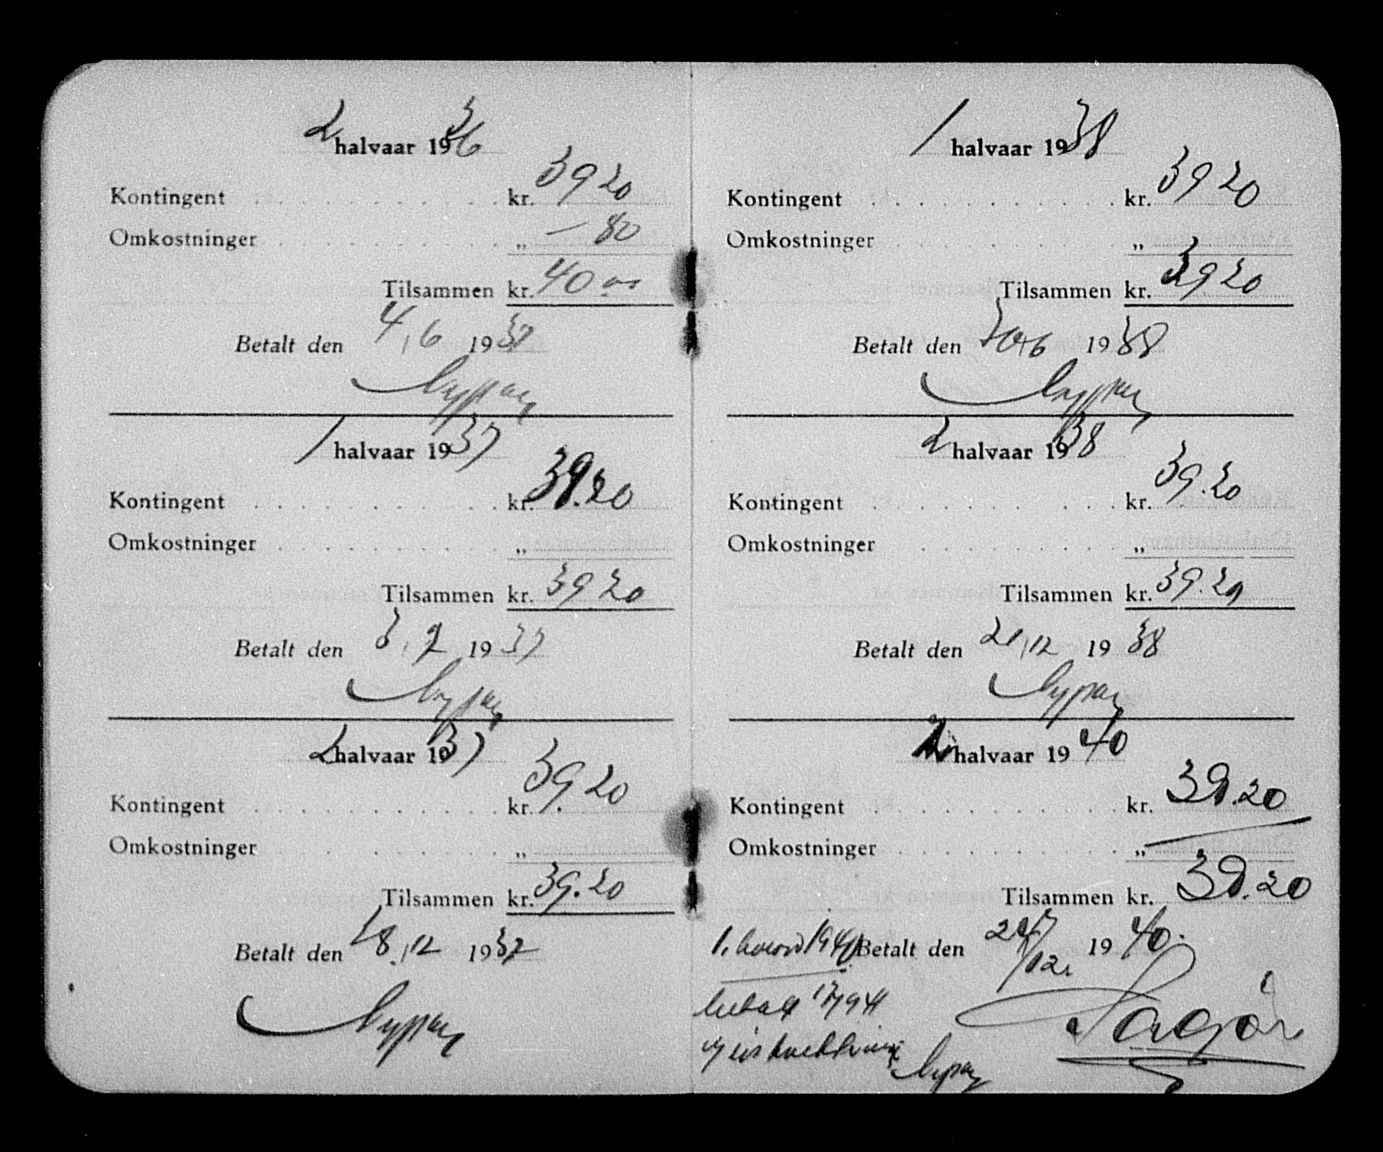 2 halvaar 1936
Kontingent kr. 39 20
Omkostninger „ — 80
Tilsammen kr. 40 00
Betalt den 4/6 1937
1 halvaar 1937
Kontingent kr. 39.20
Omkostninger „
Tilsammen kr. 39 20
Betalt den 3/7 1937
2 halvaar 1937
Kontingent kr. 39.20
Omkostninger „
Tilsammen kr. 39.20
Betalt den 18/12 1937
1 halvaar 1938
Kontingent kr. 39 20
Omkostninger „
Tilsammen kr. 39 20
Betalt den 30/6 1938
2 halvaar 1938
Kontingent kr. 39.20
Omkostninger „
Tilsammen kr. 39.20
Betalt den 21/12 1938
halvaar 1940
Kontingent kr. 39.20
Omkostninger „
Tilsammen kr. 39.20
Betalt den 24/12. 1940.